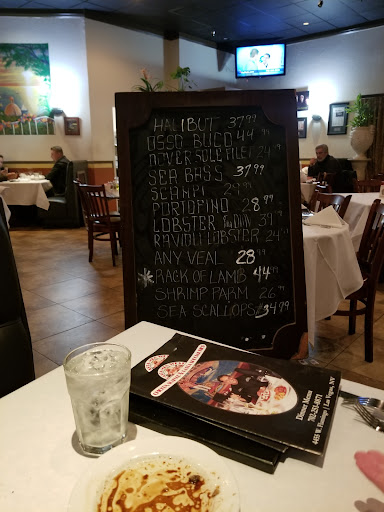 HALIBUT 37.99
OSSO BUCO 44.99
DOVER SOLE FILET 24
SEA BASS 37.99
SCAMPI 29.99
PORTOFINO 28.99
LOBSTER 39
RAVIOLI LOBSTER 24
ANY VEAL 28.99
RACK OF LAMB 44
SHRIMP PARM 26.99
SEA SCALLOPS 34.99
Dinner Menu
4455 W. Flamingo | Las Vegas, NV